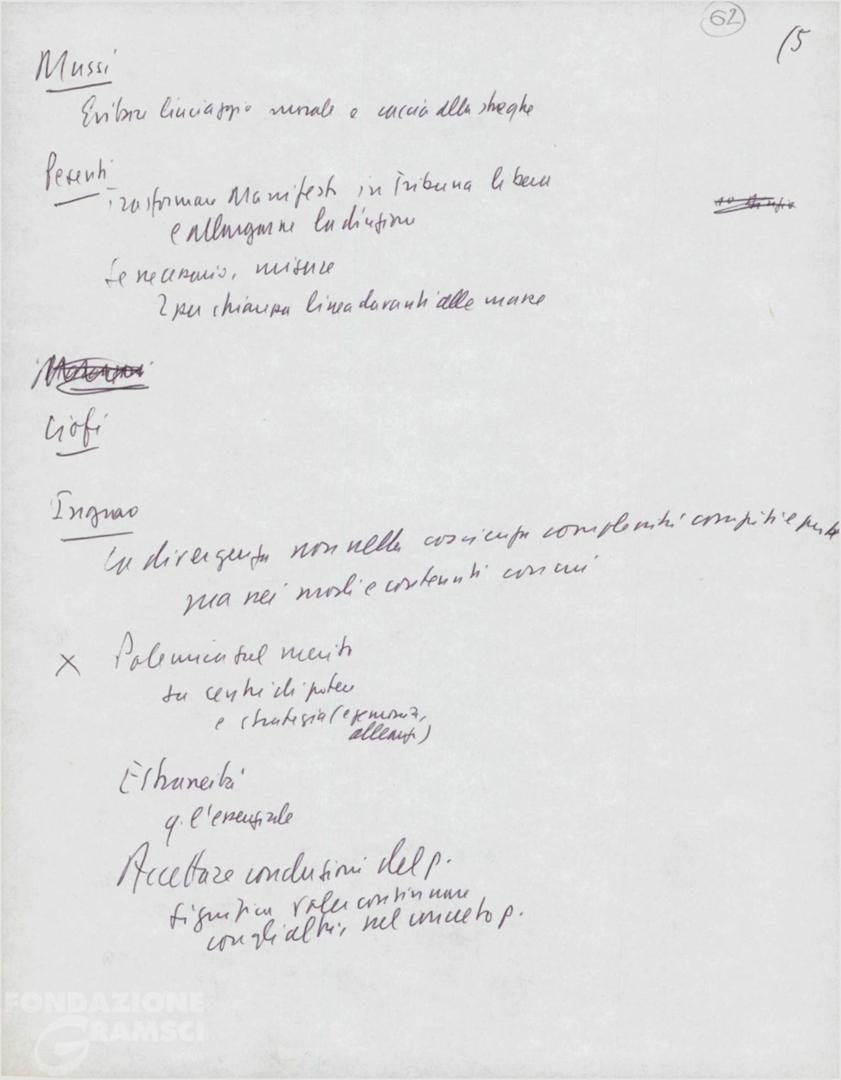 62
15
Mussi
Evitare linciaggio morale e caccia alle streghe
Pesenti
Trasformare Manifesto in Tribuna libera
e allargarne la diffusione
Se necessario, misure
2 per chiarezza linea davanti alle masse
Ciofi
Ingrao
La divergenza non nella coscienza complessità compiti e
ma nei modi e contenuti
Polemica sul merito
su centri di potere
e strategia (egemonia,
alleanze)
Estraneità
q. l'essenziale
Accettare conclusioni del p.
significa voler continuare
con gli altri, nel concreto p.
FONDAZIONE
GRAMSCI